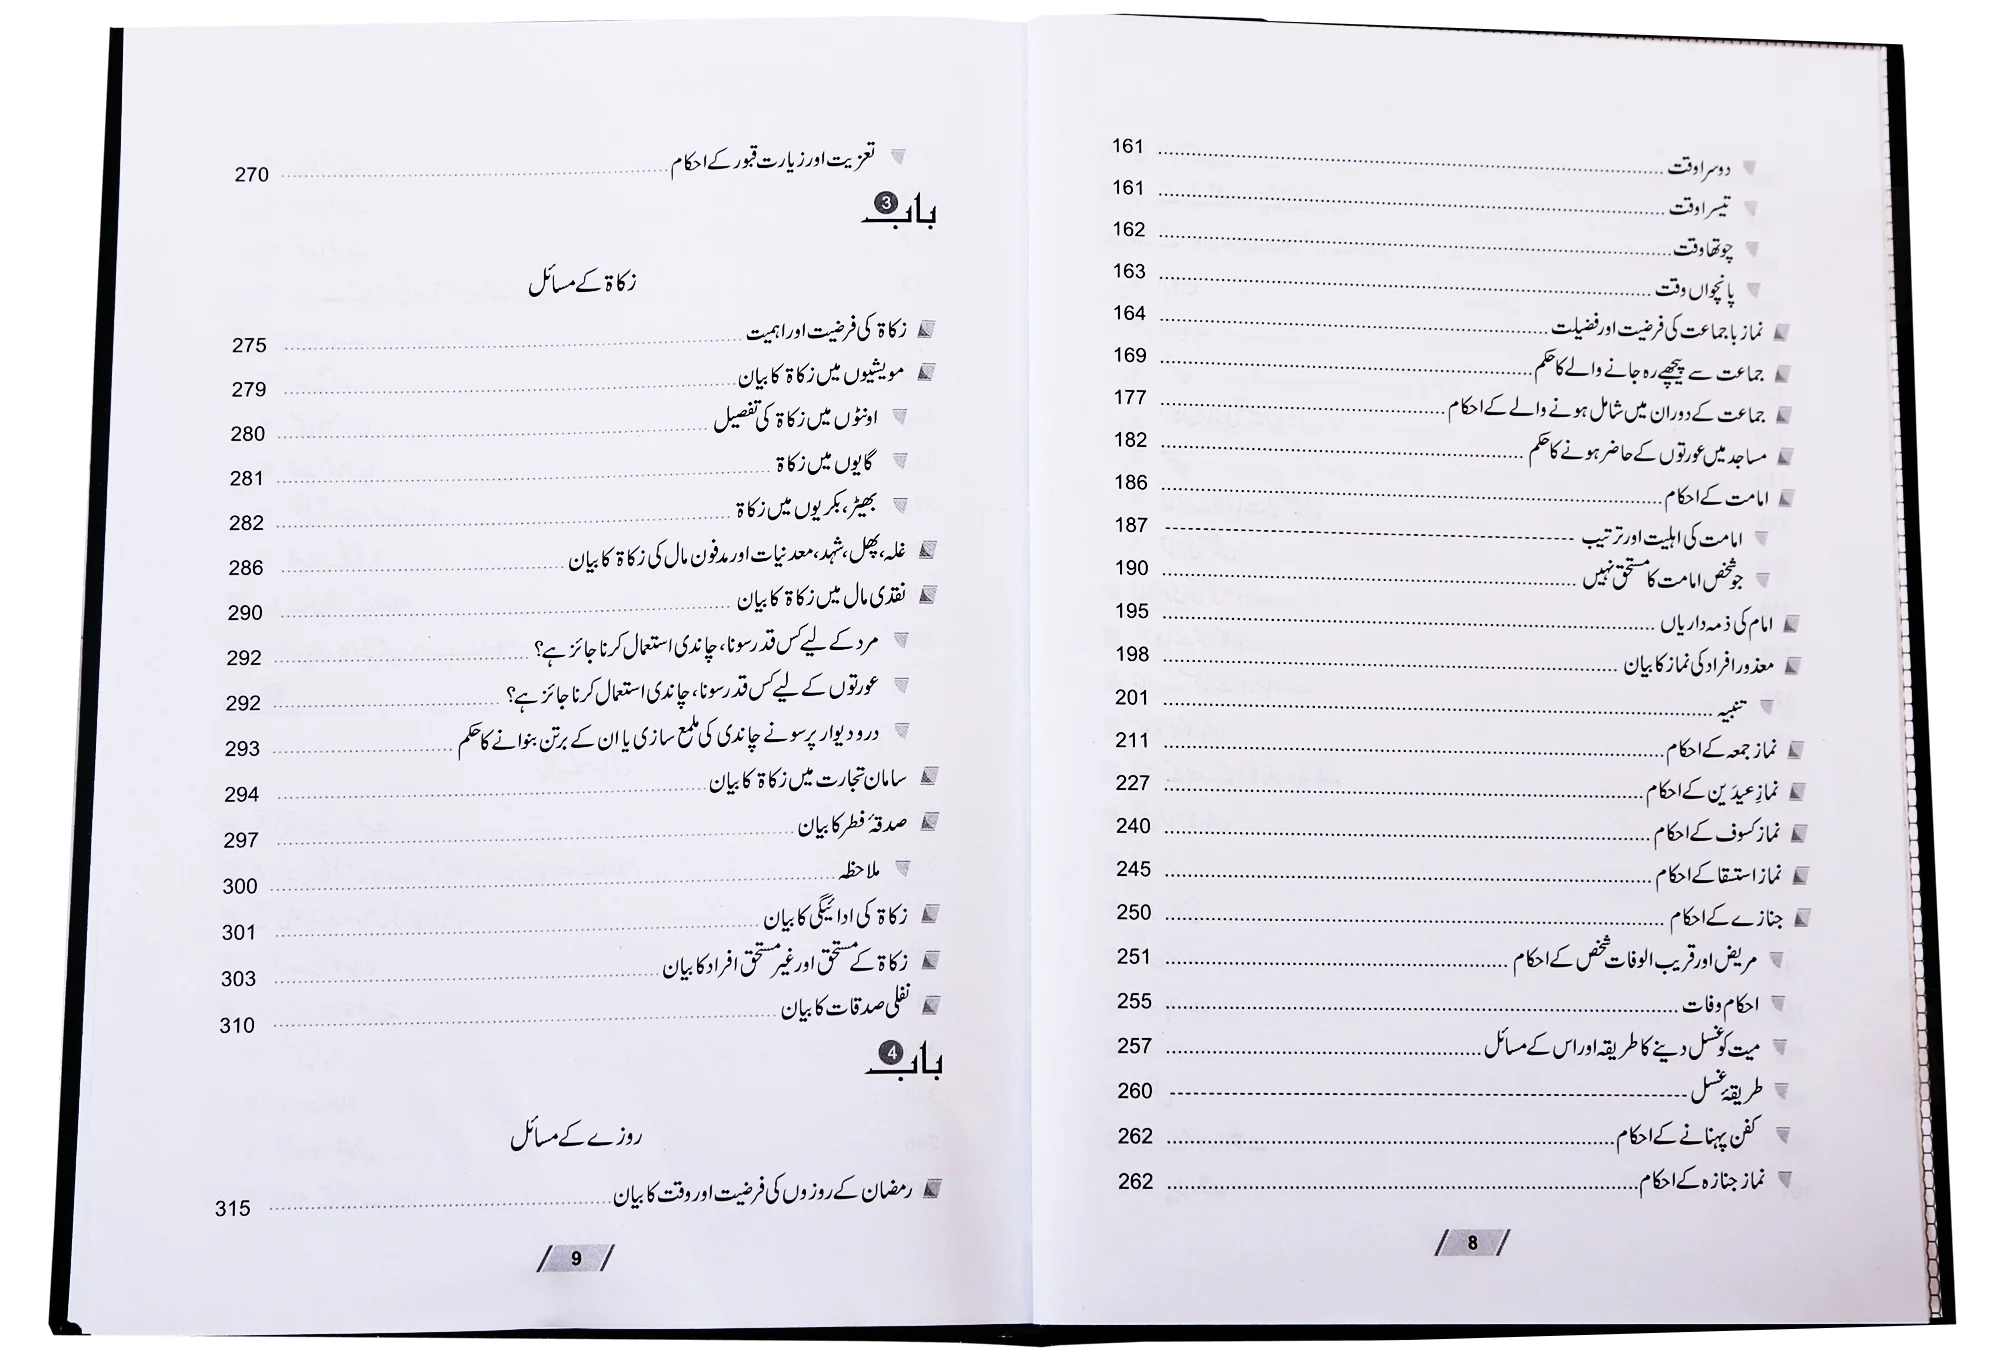 دوسرا وقت ........ 161
تیسرا وقت ........ 161
چوتھا وقت ........ 162
پانچواں وقت ........ 163
نماز باجماعت کی فرضیت اور فضیلت ........ 164
جماعت سے پیچھے رہ جانے والے کا حکم ........ 169
جماعت کے دوران میں شامل ہونے والے کے احکام ........ 177
مساجد میں عورتوں کے حاضر ہونے کا حکم ........ 182
امامت کے احکام ........ 186
امامت کی اہلیت اور ترتیب -------- 187
جو شخص امامت کا مستحق نہیں ........ 190
امام کی ذمہ داریاں ........ 195
معذور افراد کی نماز کا بیان ........ 198
تنبیہ ........ 201
نماز جمعہ کے احکام ........ 211
نمازِ عیدَین کے احکام ........ 227
نماز کسوف کے احکام ........ 240
نماز استسقا کے احکام ........ 245
جنازے کے احکام ........ 250
مریض اور قریب الوفات شخص کے احکام ........ 251
احکام وفات ........ 255
میت کو غسل دینے کا طریقہ اور اس کے مسائل ........ 257
طریقۂ غسل -------- 260
کفن پہنانے کے احکام ........ 262
نماز جنازہ کے احکام ........ 262
8
تعزیت اور زیارت قبور کے احکام ........ 270
باب 3
زکاۃ کے مسائل
زکاۃ کی فرضیت اور اہمیت ........ 275
مویشیوں میں زکاۃ کا بیان ........ 279
اونٹوں میں زکاۃ کی تفصیل ........ 280
گایوں میں زکاۃ ........ 281
بھیڑ، بکریوں میں زکاۃ ........ 282
غلہ، پھل، شہد، معدنیات اور مدفون مال کی زکاۃ کا بیان ........ 286
نقدی مال میں زکاۃ کا بیان ........ 290
مرد کے لیے کس قدر سونا، چاندی استعمال کرنا جائز ہے؟ ........ 292
عورتوں کے لیے کس قدر سونا، چاندی استعمال کرنا جائز ہے؟ ........ 292
در و دیوار پر سونے چاندی کی ملمع سازی یا ان کے برتن بنوانے کا حکم ........ 293
سامان تجارت میں زکاۃ کا بیان ........ 294
صدقۂ فطر کا بیان ........ 297
ملاحظہ ........ 300
زکاۃ کی ادائیگی کا بیان ........ 301
زکاۃ کے مستحق اور غیر مستحق افراد کا بیان ........ 303
نفلی صدقات کا بیان ........ 310
باب 4
روزے کے مسائل
رمضان کے روزوں کی فرضیت اور وقت کا بیان ........ 315
9